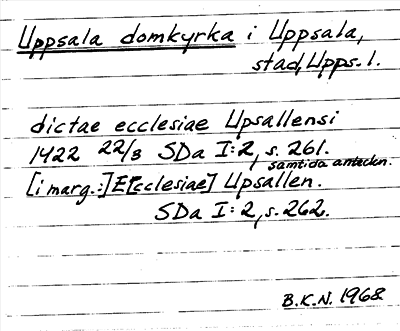 Uppsala domkyrka i Uppsala,
stad, Upps. l.
dictae ecclesiae Upsallensi
1422 22/8 SDa I:2, s. 261.
samtida anteckn.
[i marg.:] E[cclesiae] Upsallen.
SDa I:2, s. 262.
B.K.N. 1968